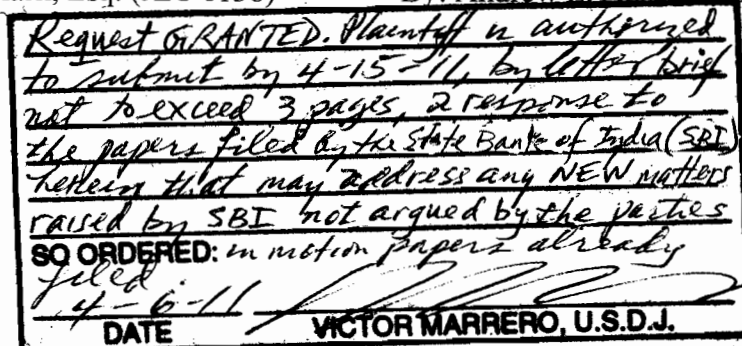 Esq.
Request GRANTED. Plaintiff is authorized
to submit by 4-15-11, by letter brief
not to exceed 3 pages, a response to
the papers filed by the State Bank of India (SBI)
herein that may address any NEW matters
raised by SBI not argued by the parties
SO ORDERED: in motion papers already
filed.
4-6-11
DATE VICTOR MARRERO, U.S.D.J.